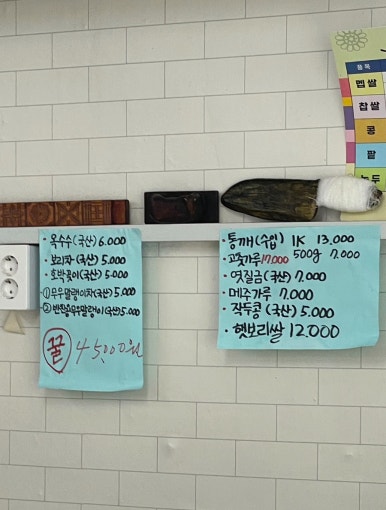 · 옥수수(국산) 6.000
· 보리차(국산) 5.000
· 호박꽂이(국산) 5.000
① 무우말랭이차(국산) 5.000
② 반찬용무우말랭이(국산) 5.000
꿀 45,000원
· 통깨(수입) 1K 13.000
· 고춧가루 17.000 500g 7.000
· 엿질금(국산) 7.000
· 메주가루 7.000
· 작두콩(국산) 5.000
· 햇보리쌀 12.000
품목
멥쌀
찹쌀
콩
팥
녹두